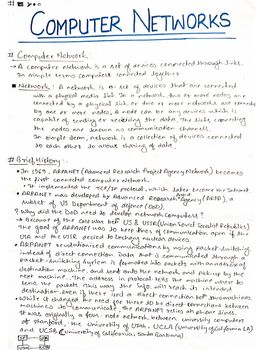 COMPUTER NETWORKS
# Computer Network.
→ A computer network is a set of devices connected through links.
In simple terms computers connected together
■ Network : A network is a set of devices that are connected
with a physical media link. In a network two or more nodes are
connected by a physical link or two or more networks are connected
by one or more nodes. A node can be any device which is
capable of sending or receiving the data. The links connecting
the nodes are known as communication channels.
In simple term, network is a collection of devices connected
to each other to allow sharing of data.
# Brief History :-
• In 1969, ARPANET (Advanced Research Project Agency Network) becomes
the first connected computer network.
• It implemented the TCP/IP protocol, which later became the Internet
• ARPANET was developed by Advanced Research Project Agency (ARPA), a
subset of US Department of Defence (DOD).
• Why did the DoD need to develop network computers?
→ Because of the Cold War bet US & USSR (Union Soviet Socialist Republics)
The goal of ARPANET was to keep lines of communication open if the
USA and the USSR decided to exchange nuclear devices.
• ARPANET revolutionized communications by using packet switching
instead of direct connection. Data that is communicated through a
packet switching system is formatted into packets with the address of
destination machine, and sent onto the network and picked up by the
next machine. The address in protocol tells the machine where to
send the packets. This way the info. will reach its intended
destination even if there isn't a direct connection bet two machines
• While it changed the need for there to be direct connection between
machines to communicate, the ARPANET relies on phone lines.
• It was originally a four-node network between university computers
at Stanford, the University of Utah, UCLA (University of California LA)
and UCSB (University of California, Santa Barbara)